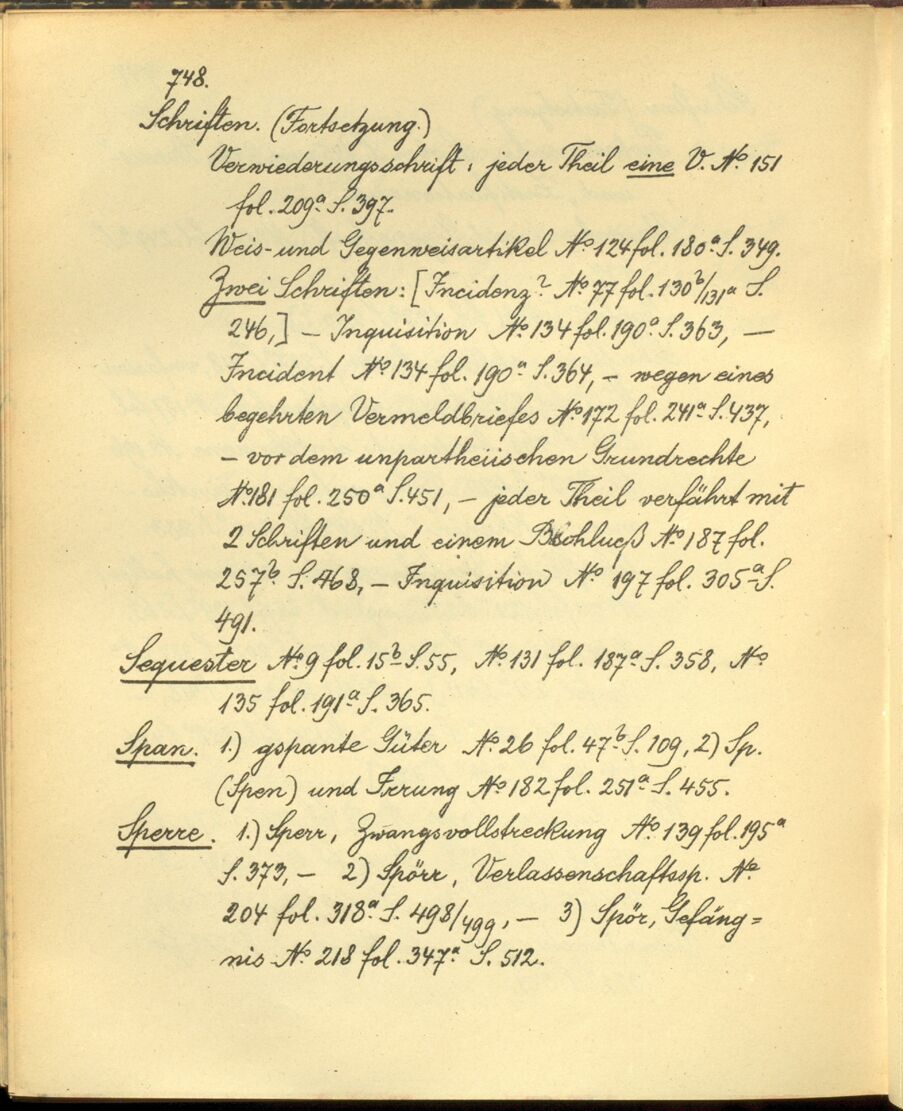 748.
Schriften. (Fortsetzung.)
Verwiederungsschrift: jeder Theil eine V. No 151
fol. 209a S. 397.
Weis- und Gegenweisartikel No 124 fol. 180a S. 349.
Zwei Schriften: [Incidenz? No 77 fol. 130b/131a S.
246,] – Inquisition No 134 fol. 190a S. 363, –
Incident No 134 fol. 190a S. 364, – wegen eines
begehrten Vermeldbriefes No 172 fol. 241a S. 437,
– vor dem unpartheiischen Grundrechte
No 181 fol. 250a S. 451, – jeder Theil verfährt mit
2 Schriften und einem Beschluß No 187 fol.
257b S. 468, – Inquisition No 197 fol. 305a S.
491.
Sequester No 9 fol. 15b S. 55, No 131 fol. 187a S. 358, No
135 fol. 191a S. 365.
Span. 1.) gspante Güter No 26 fol. 47b S. 109, 2) Sp.
(Spen) und Irrung No 182 fol. 251a S. 455.
Sperre. 1.) Sperr, Zwangsvollstreckung No 139 fol. 195a
S. 373, – 2) Spörr, Verlassenschaftssp. No
204 fol. 318a S. 498/499, – 3) Spör, Gefäng=
nis No 218 fol. 347a S. 512.